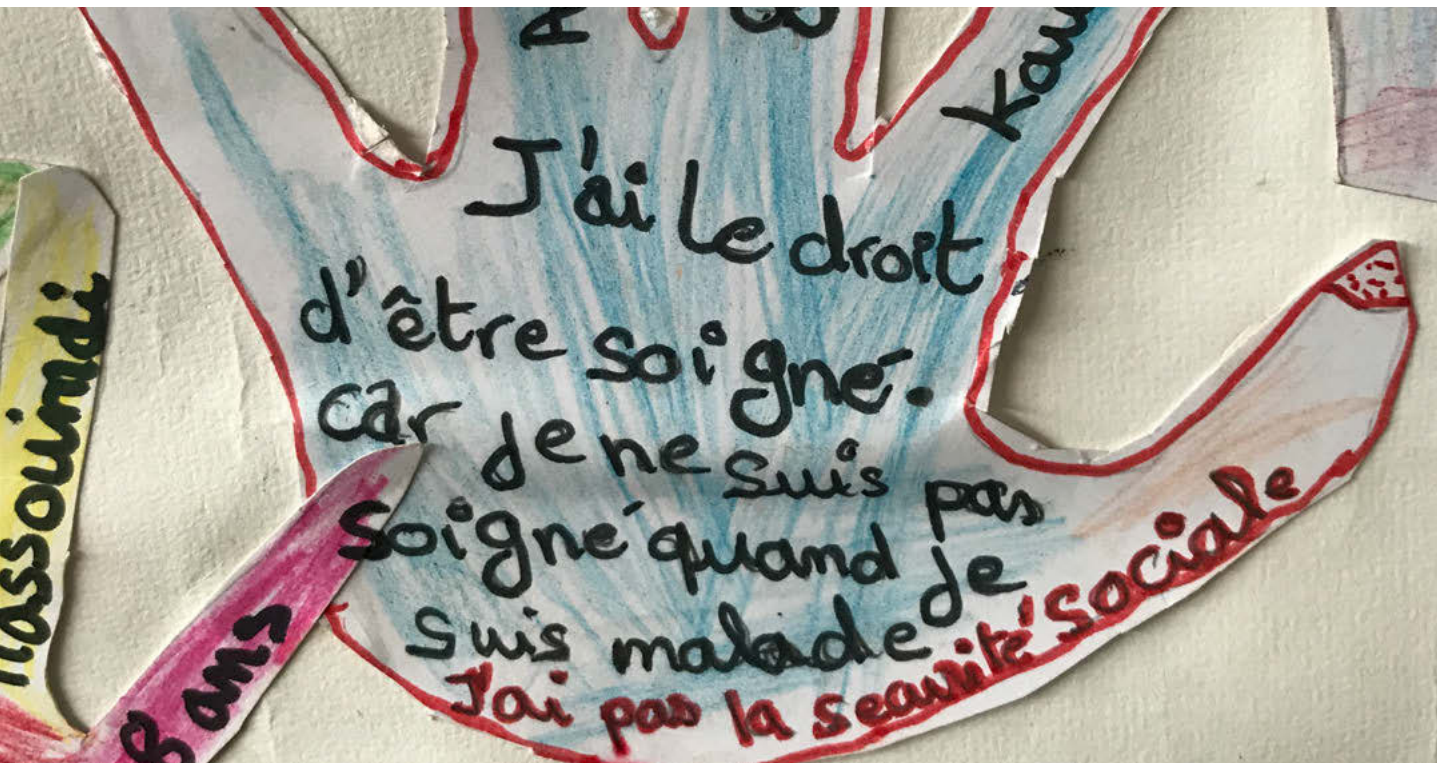 J'ai le droit
d'être soigné.
car je ne suis pas
soigné quand je
suis malade
J'ai pas la securité sociale
8 ans